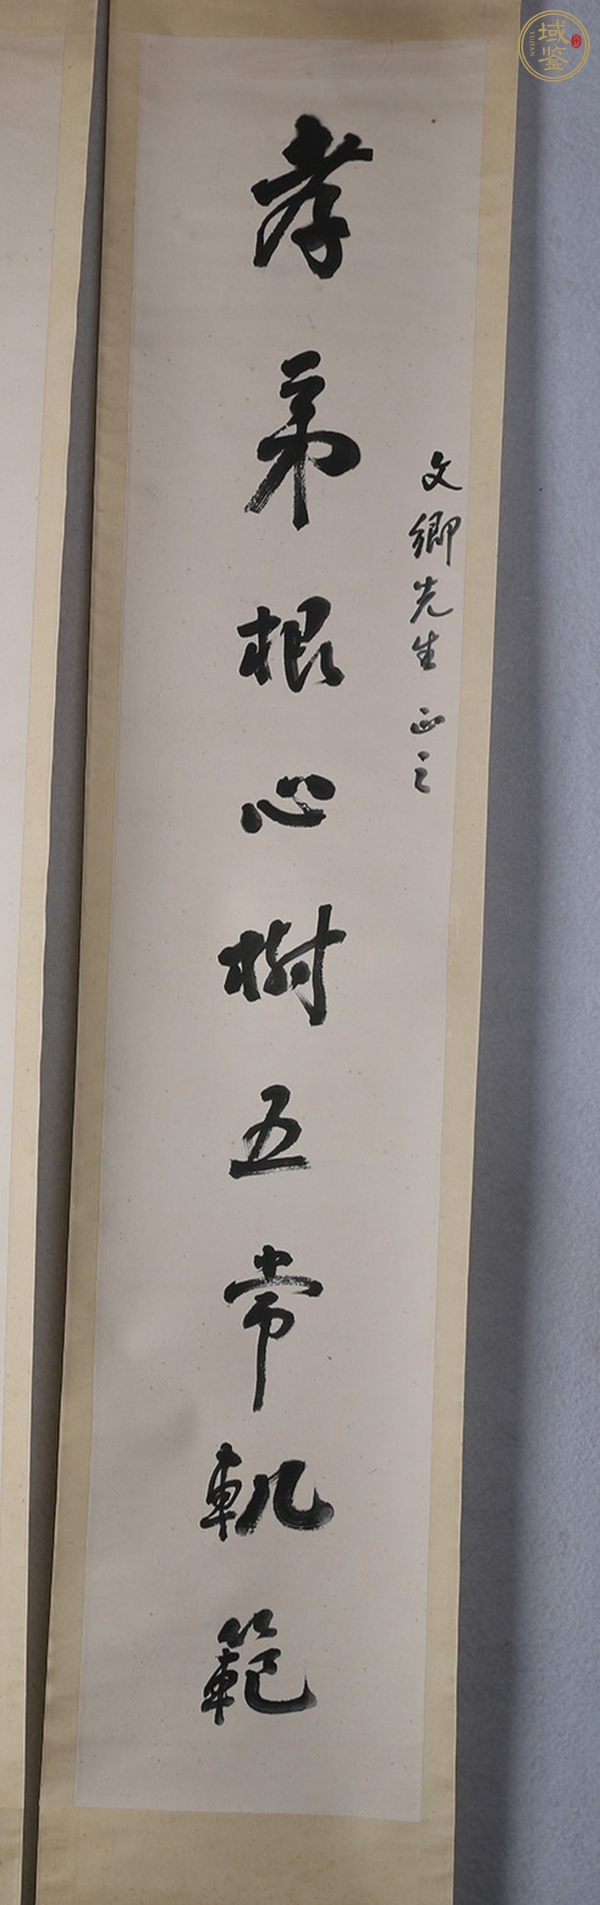 孝弟根心樹五常軌範
文卿先生正之
域鉴
YUJIAN